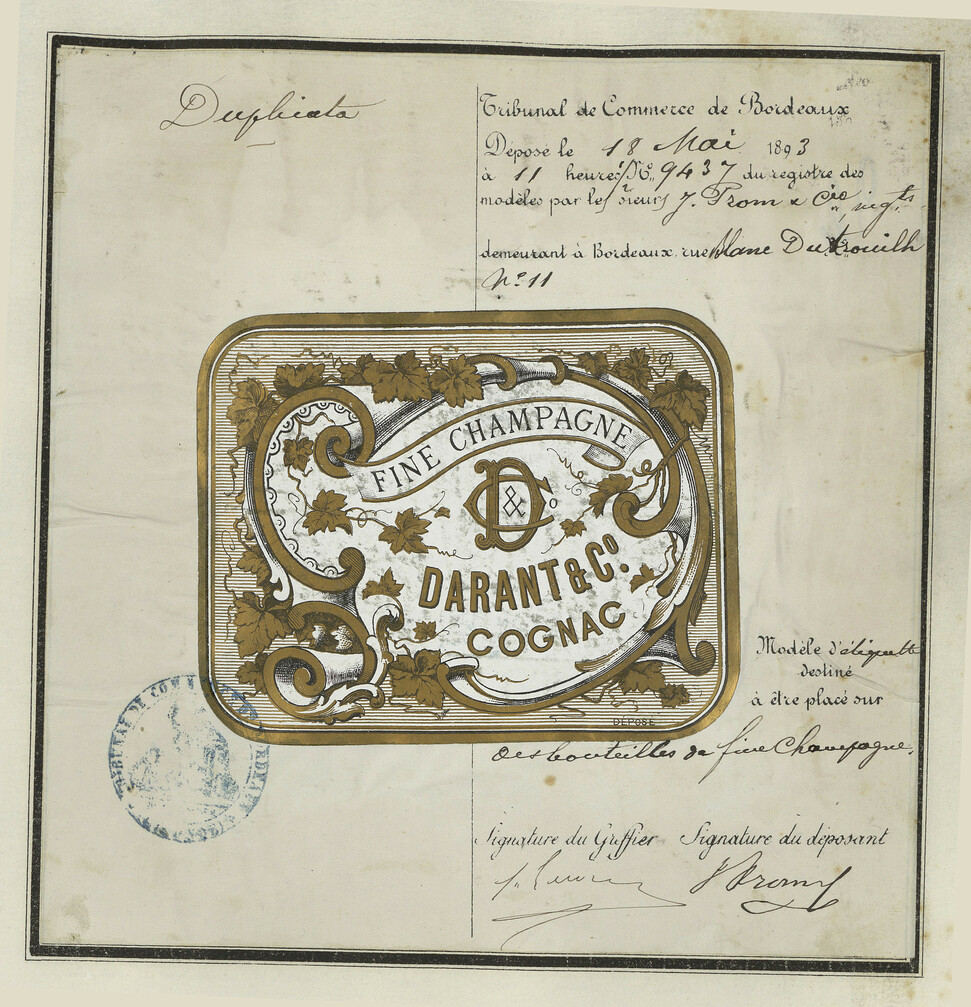 Duplicata
Tribunal de Commerce de Bordeaux
Déposé le 18 Mai 1893
à 11 heures N.º 9437 du registre des
modèles par les sieurs J. Prom & Cie, nég.ts
demeurant à Bordeaux rue Blanc Dutrouilh
N.º 11
FINE CHAMPAGNE
D & Co
DARANT & Co.
COGNAC
DÉPOSÉ
Modèle d'étiquette
destiné
à être placé sur
des bouteilles de fine Champagne.
TRIBUNAL DE COMMERCE DE BORDEAUX
Signature du Greffier Signature du déposant
J Prom